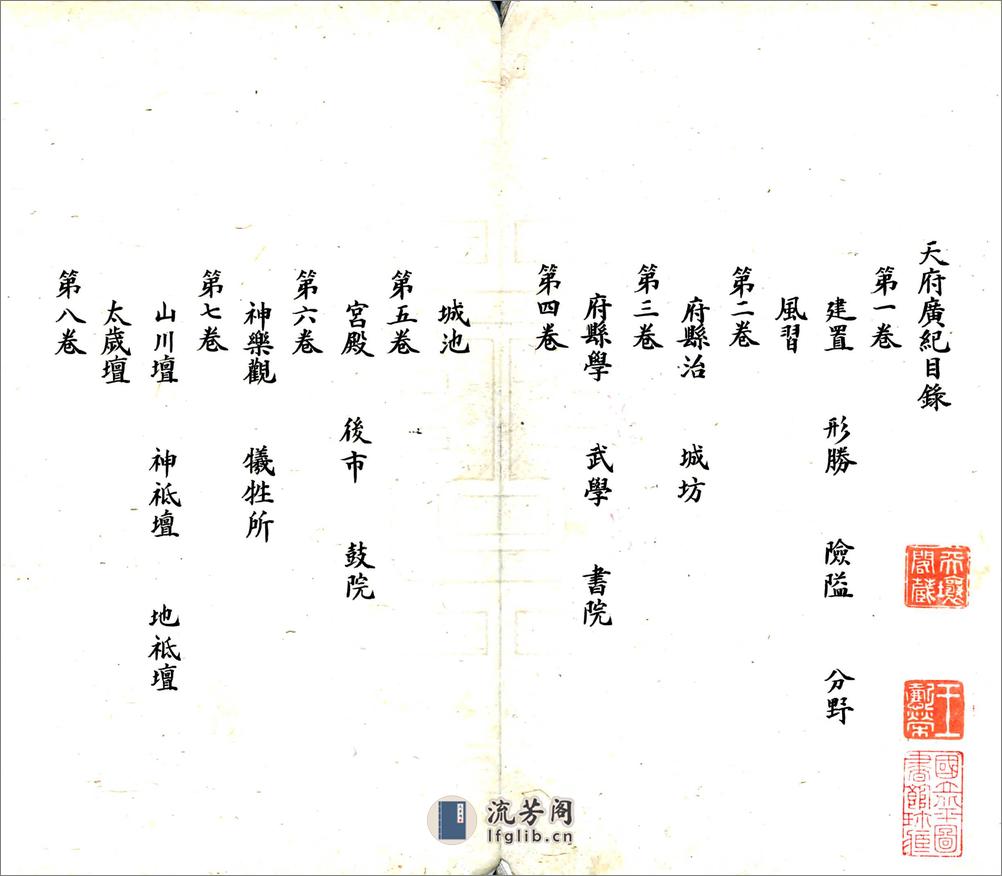 天府廣紀目錄
第一卷
建置 形勝 險隘 分野
風習
第二卷
府縣治 城坊
第三卷
府縣學 武學 書院
第四卷
城池
第五卷
宮殿 後市 鼓院
第六卷
神樂觀 犧牲所
第七卷
山川壇 神祗壇 地祗壇
太歲壇
第八卷
天壤閣藏
王懿榮
流芳阁
lfglib.cn